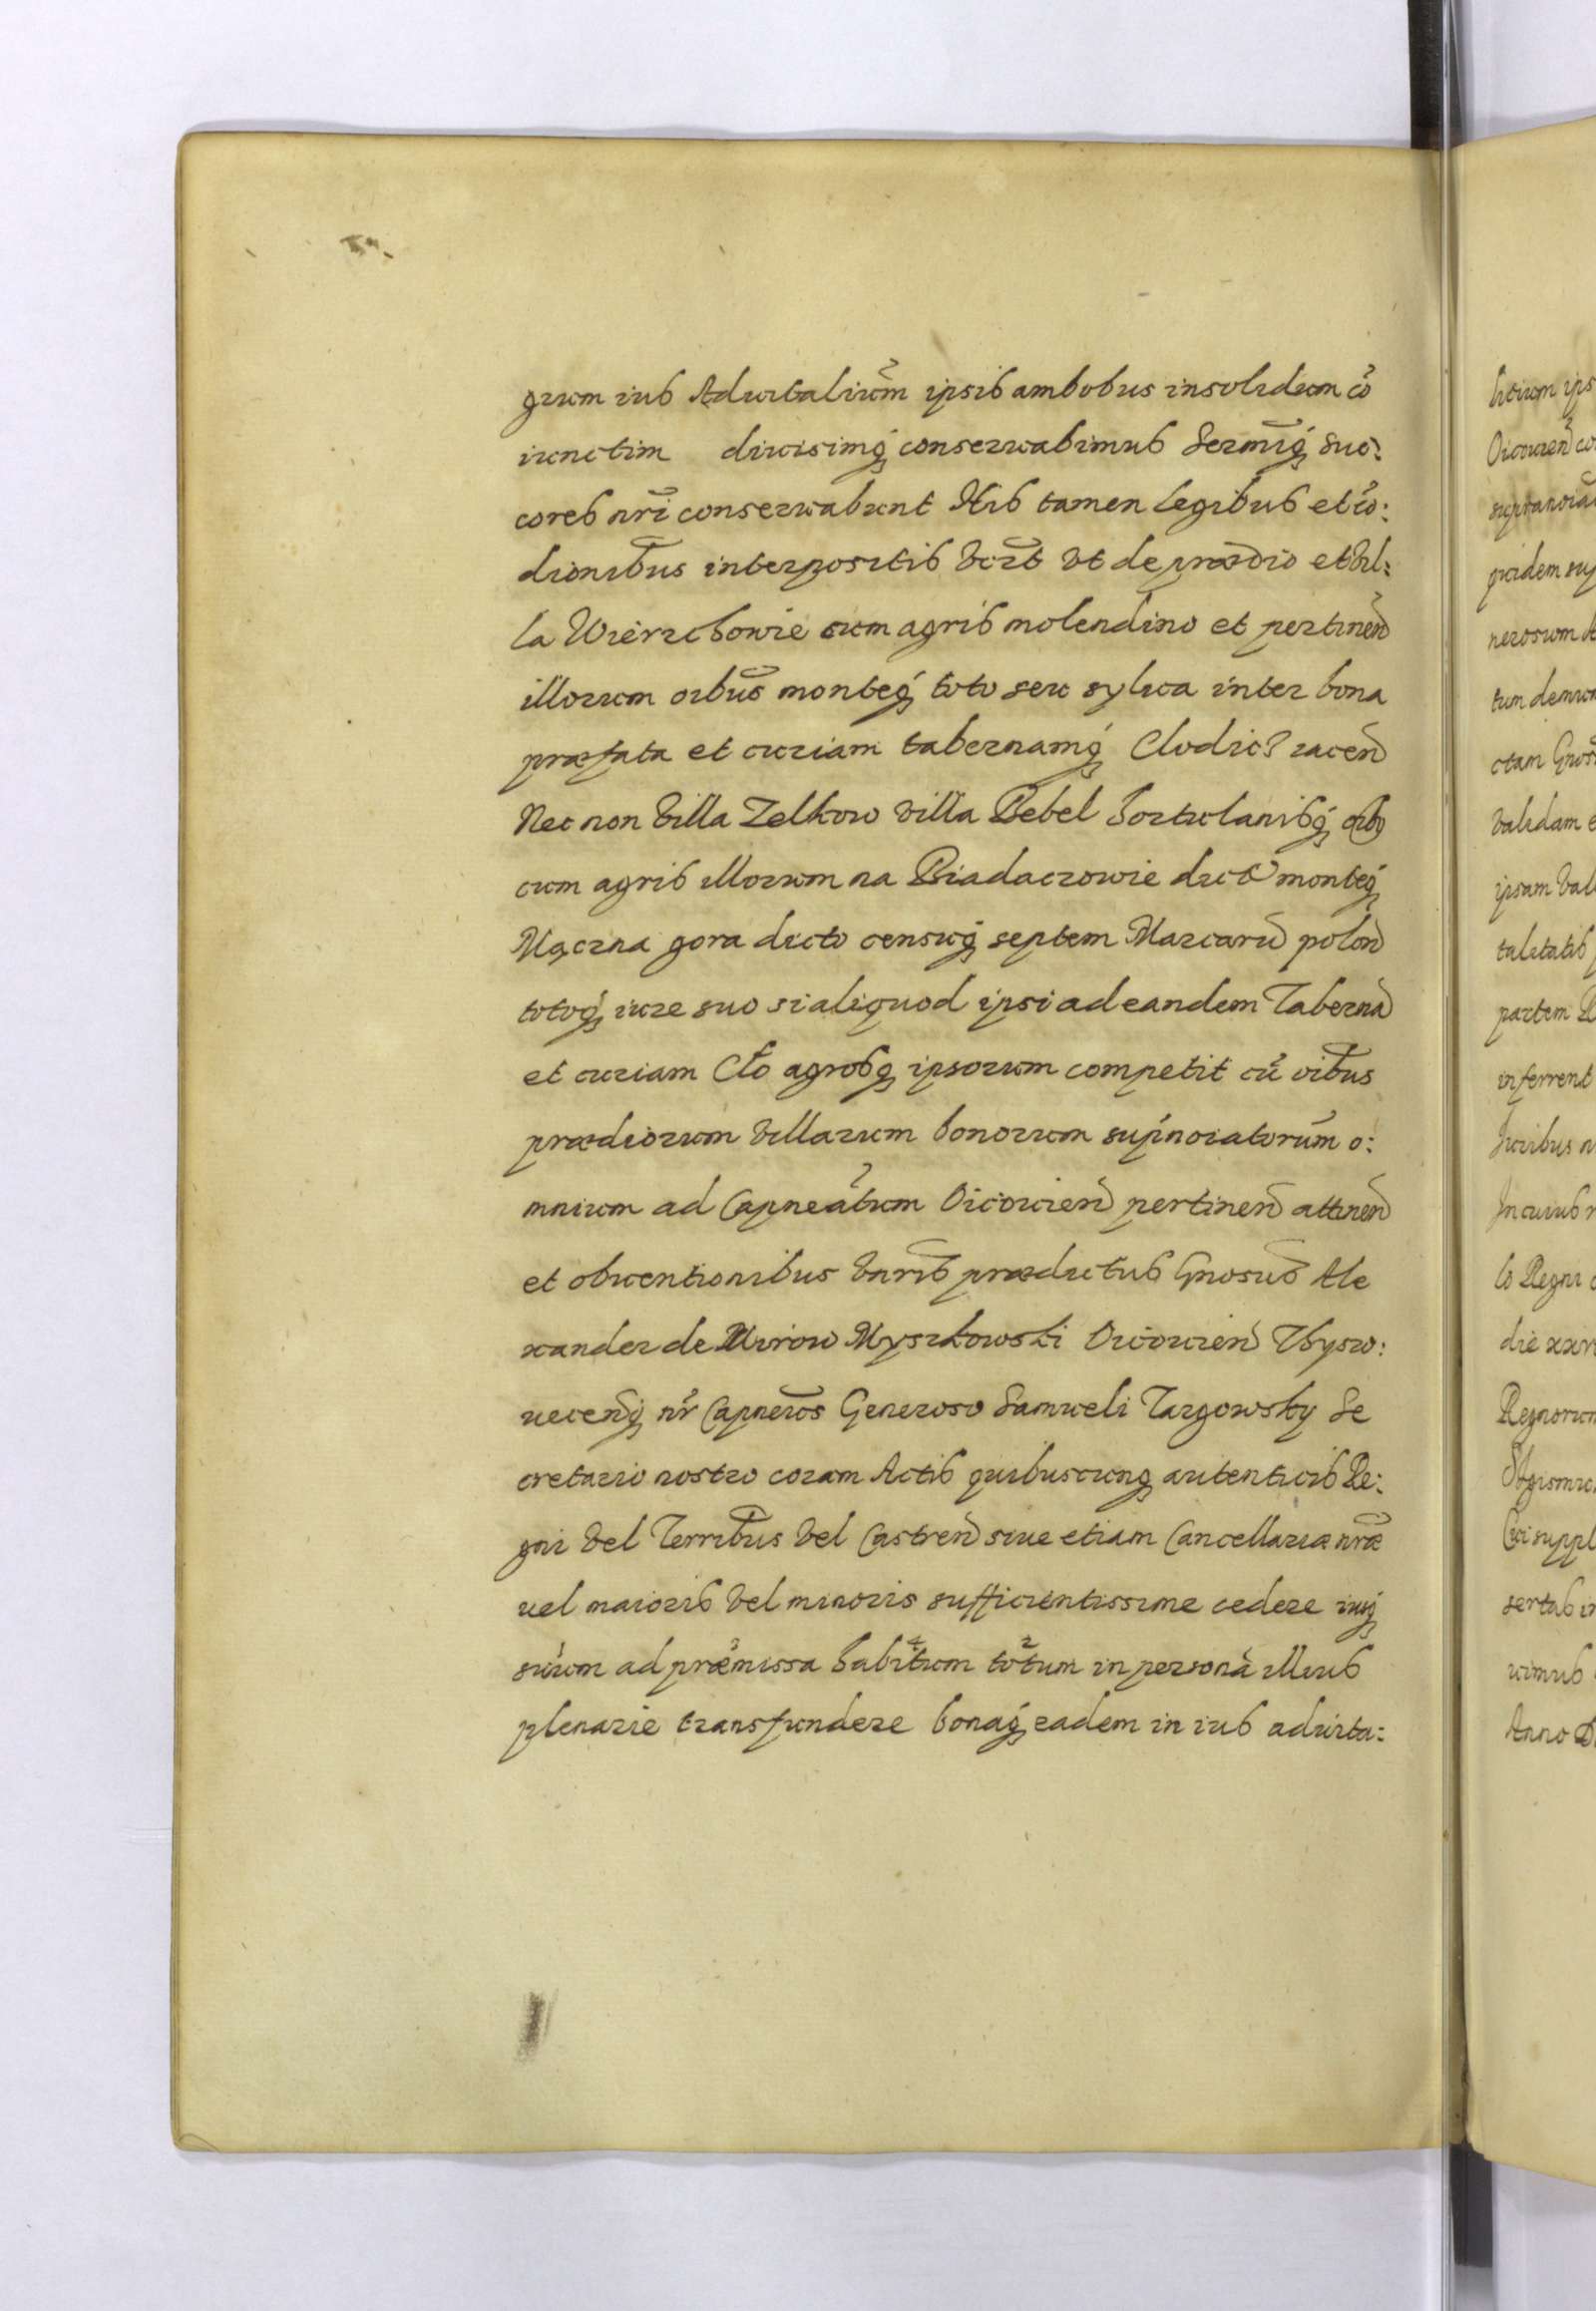 grum ius Aduitalium̃ ipsis ambobus insolidum cõ
iunctim diuisimq́ conseruabimus Serm̃iq́ suc:
cores nr̃i conseruabunt His tamen legibus et cõ:
dionib̃us interpositis vcz̃t vt de prædio et vil:
la Wierzchowie cum agris molendino et pertineñ
illorum oĩbus monteq́ toto seu sylua inter bona
præfata et curiam tabernamq́ Clodic? iaceñ
Nec non villa Zelkow villa Bebel hortulanisq́ oĩbq
cum agris illorum na Biadaczowie dict̃ monteq́
Mączna gora dicto censuq́ septem Marcarũ poloñ
totoq́ iure suo si aliquod ipsi ad eandem Tabernã
et curiam Cto agrosq́ ipsorum competit cũ oĩbus
prædiorum villarum bonorum sup̃noiatorum̃ o:
mnium ad Capneãtum Oicouieñ pertineñ attineñ
et obuentionibus vnr̃is prædictus Gnosus̃ Ale
xander de Mirow Myszkowski Oicouieñ Thyszo:
uieceñq́ nr̃ Capneus̃ Generoso Samueli Targowsky Se
cretario nostro coram Actis quibuscunq́ autenticis Re:
gni vel Terrib̃us vel Castreñ siue etiam Cancellariæ nr̃æ
uel maioris vel minoris sufficientissime cedere iusq́
suum ad præmissa habit̃um tot̃um in personã illius
plenarie transfundere bonaq́ eadem in ius aduita: